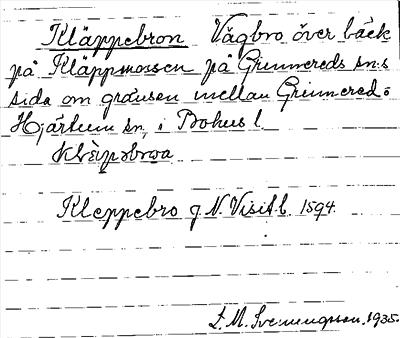 Kläppebron Vägbro över bäck
på Kläppmossen på Grinnereds sn:s
sida om gränsen mellan Grinnered o
Hjärtum sn, i Bohus l.
Kleppebro g N. Visit.b. 1594.
L. M. Svenungsson. 1935.